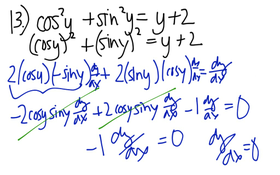 13.) cos²y + sin²y = y + 2
(cosy)² + (siny)² = y + 2
2(cosy)(-siny)dy/dx + 2(siny)(cosy)dy/dx = dy/dx
-2cosysiny dy/dx + 2cosysiny dy/dx - 1 dy/dx = 0
-1 dy/dx = 0 dy/dx = 0